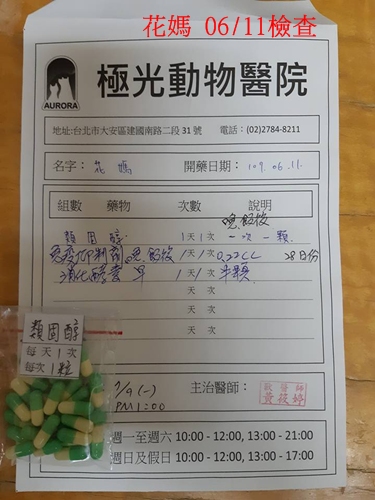 花媽 06/11檢查
AURORA
極光動物醫院
地址:台北市大安區建國南路二段 31 號 電話：(02)2784-8211
名字： 花媽 開藥日期： 109.06.11.
組數 藥物 次數 說明
晚 飯後
類固醇 1天1次 一次一顆
免疫抑制劑 晚飯後 1天1次 0.22CC 28日份
消化酵素 早 1天1次 半顆
天 次
天 次
天 次
類固醇
每天1次
每次1粒
7/9 (一)
PM1:00
主治醫師：
獸醫師
黃筱婷
週一至週六 10:00 - 12:00, 13:00 - 21:00
週日及假日 10:00 - 12:00, 13:00 - 17:00